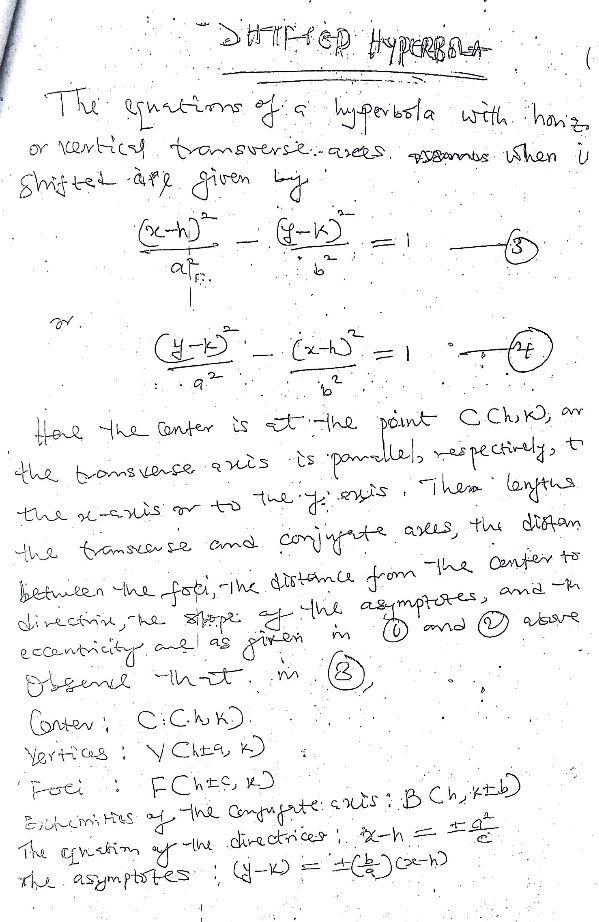 SHIFTED HYPERBOLA
The equations of a hyperbola with horiz
or vertical transverse axes when
shifted are given by
(x-h)²/a² - (y-k)²/b² = 1 — ③
or.
(y-k)²/a² - (x-h)²/b² = 1 — ④
Here the center is at the point C(h,k), an
the transverse axis is parallel, respectively, t
the x-axis or to the y-axis. The lengths
the transverse and conjugate axes, the distan
between the foci, the distance from the center to
directrix, the slope of the asymptotes, and th
eccentricity are as given in ① and ② above
Observe that in ③,
Center: C:(h,k).
Vertices: V(h±a, k)
Foci : F(h±c, k)
Extremities of the conjugate axis: B(h, k±b)
The equation of the directrices: x-h = ±a²/c
The asymptotes : (y-k) = ±(b/a)(x-h)